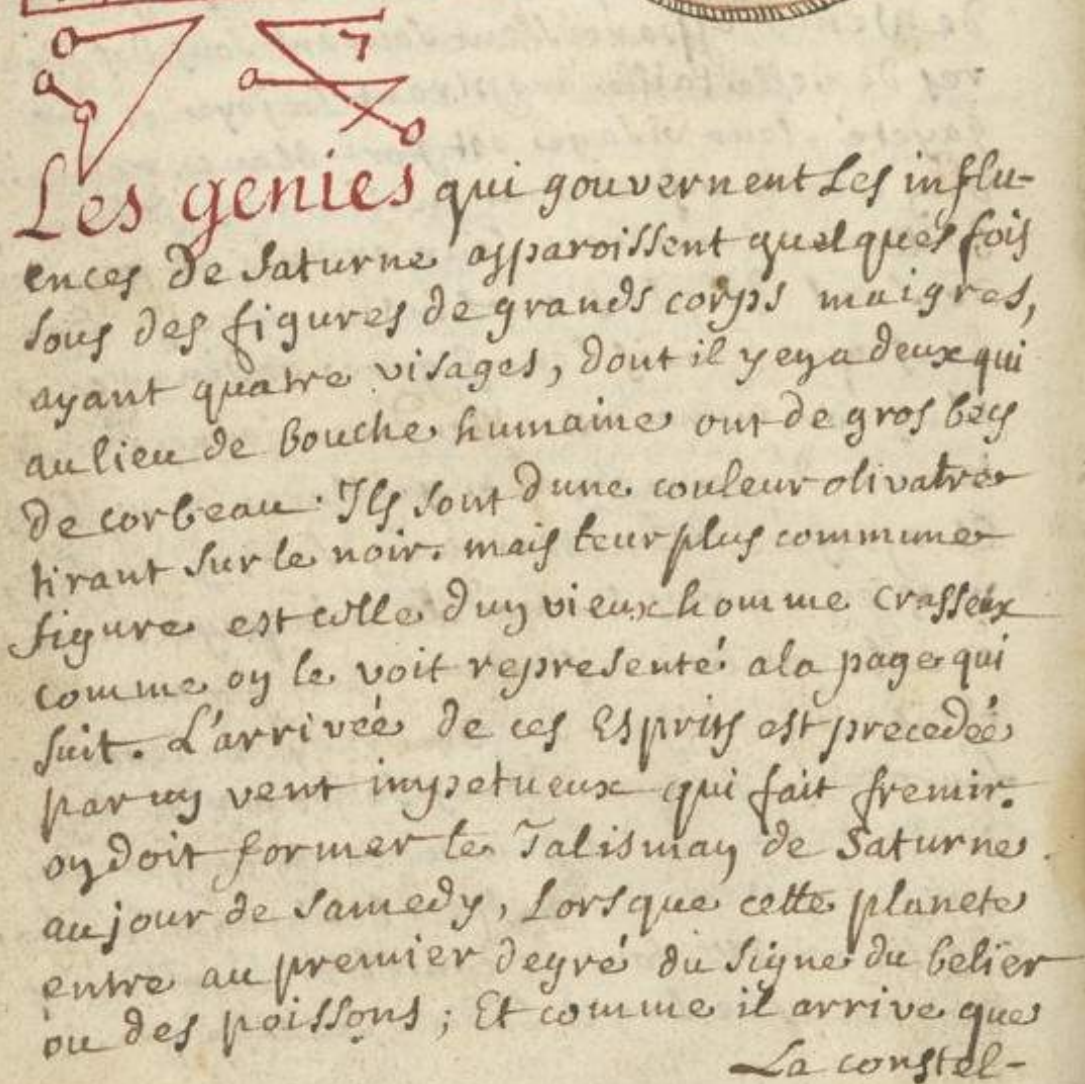 Les genies qui gouvernent Les influ-
ences de Saturne apparoissent quelques fois
sous des figures de grands corps maigres,
ayant quatre visages, dont il y en a deux qui
au lieu de bouche humaine ont de gros becs
de corbeau. Ils sont dune couleur olivatre
tirant sur le noir. mais leur plus commune
figure est celle dun vieux homme crasseux
comme on le voit representé a la page qui
suit. L'arrivée de ces Esprits est precedée
par un vent impetueux qui fait fremir.
on doit former le Talisman de Saturne
au jour de samedy, Lorsque cette planete
entre au premier degré du signe du belier
ou des poissons; Et comme il arrive que
La constel-